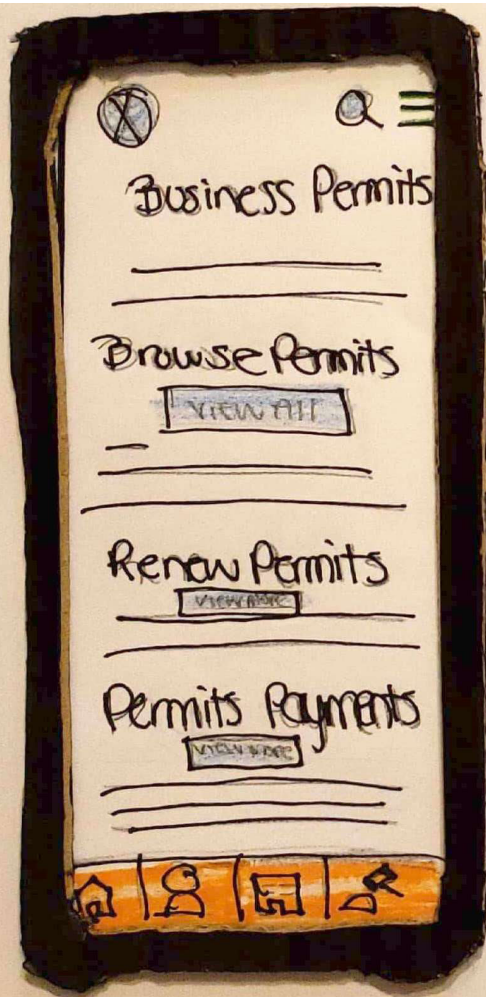 Business Permits
Browse Permits
VIEW All
Renew Permits
VIEW MORE
Permits Payments
VIEW MORE